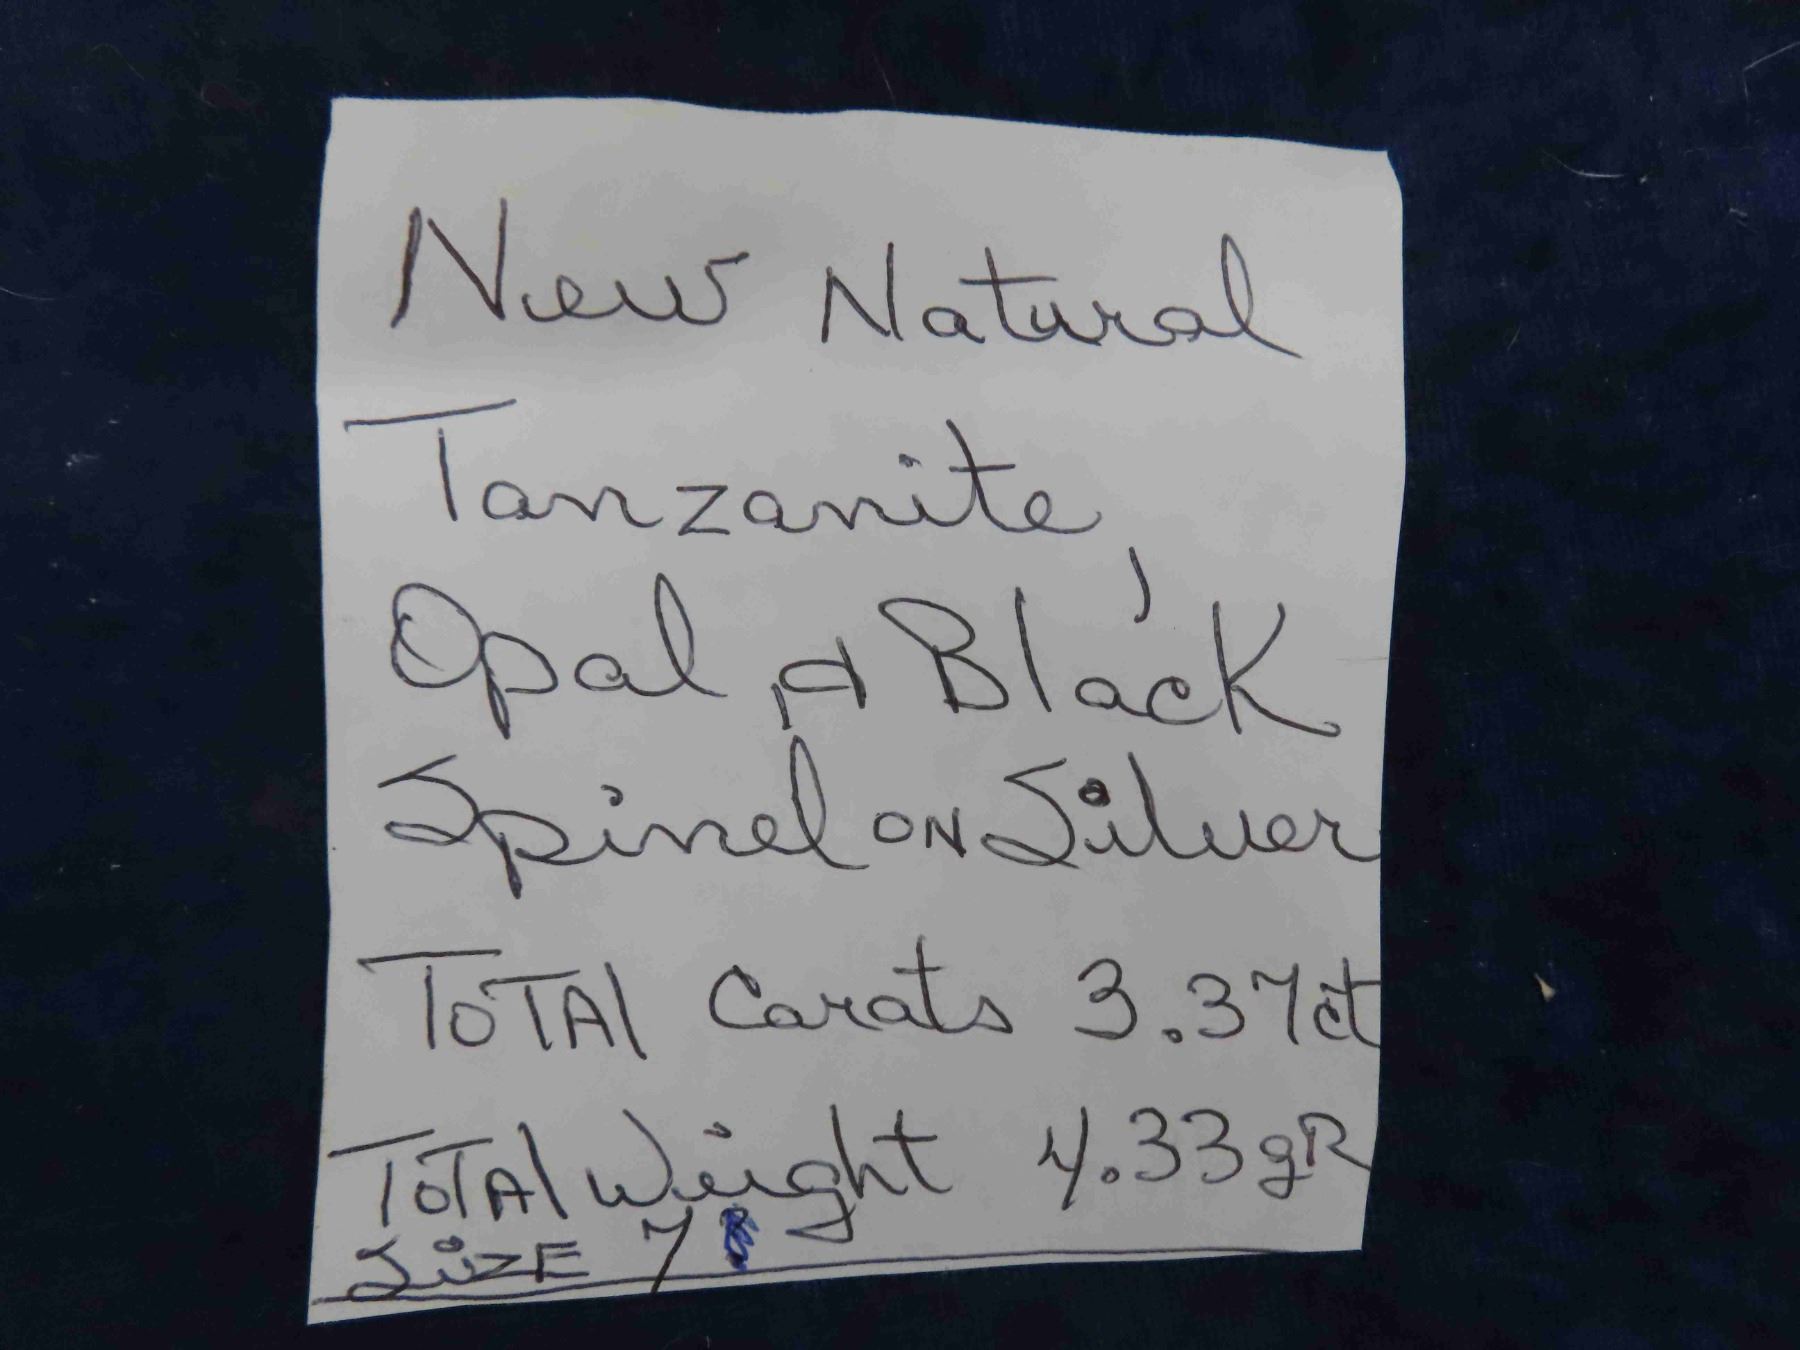 New Natural
Tanzanite,
Opal, & Black
Spinel ON Silver
TOTAL Carats 3.37ct
TOTAL Weight 4.33gR
SIZE 7